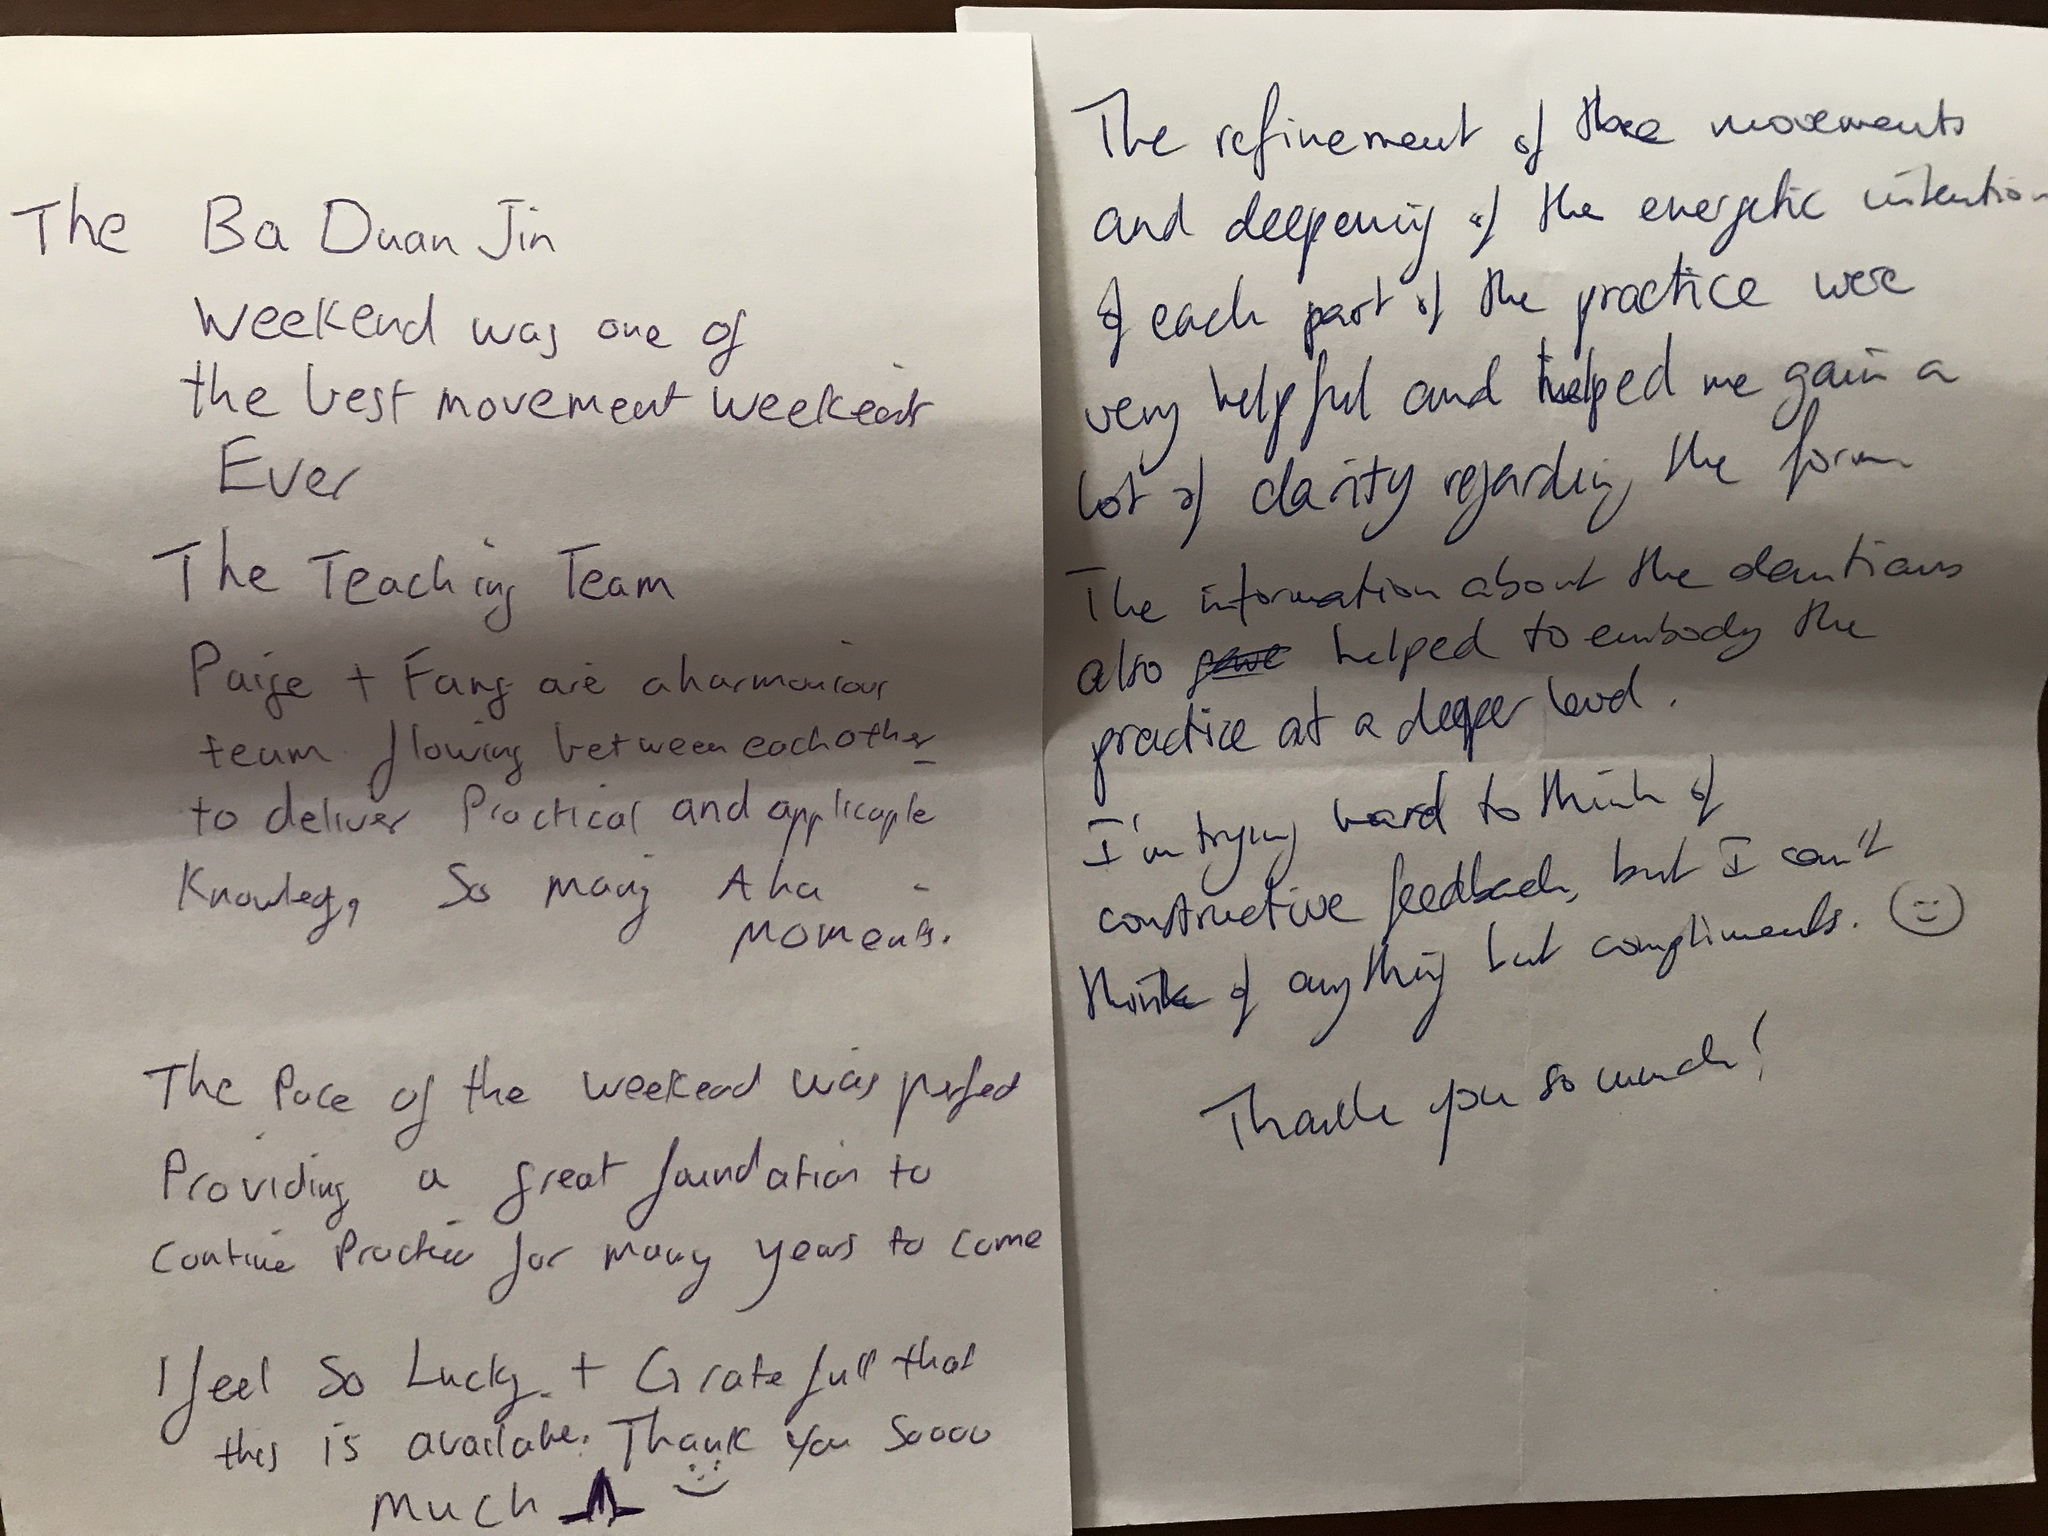 The Ba Duan Jin
Weekend was one of
the best movement weekends
Ever
The Teaching Team
Paige + Fang are a harmonious
team flowing between each other
to deliver Practical and applicaple
Knowledg, So many Aha
Moments.
The Pace of the weekend was perfect
Providing a great foundation to
Continue Practice for many years to come
I feel So Lucky + Gratefull that
this is available. Thank you Soooo
much
The refinement of these movements
and deepening of the energetic intention
of each part of the practice were
very helpful and helped me gain a
lot of clarity regarding the form
The information about the dantians
also helped to embody the
practice at a deeper level.
I'm trying hard to think of
constructive feedback, but I can't
think of anything but compliments.
Thank you so much!